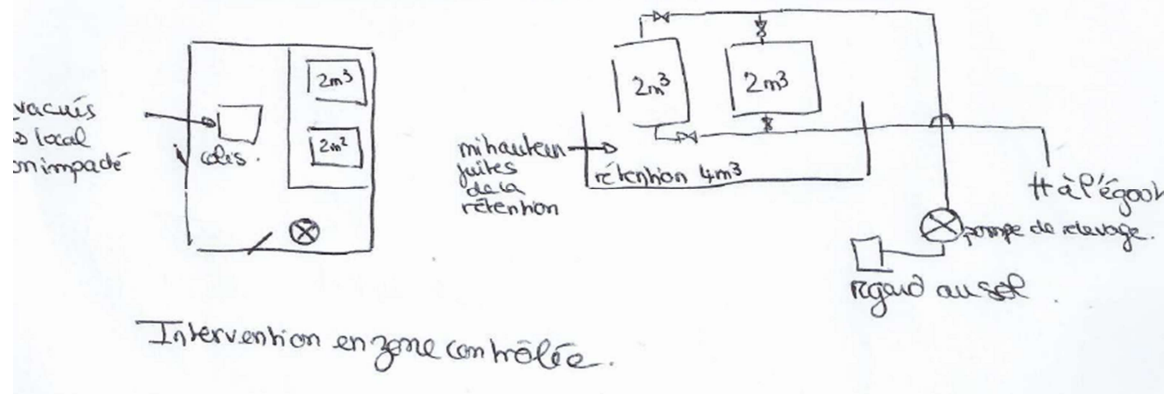 vacués
local
impacté
colis.
2m³
2m²
2m³
2m³
mi hauteur
fuites
de la
rétention
rétention 4m³
à l'égout
pompe de relevage.
regard au sol
Intervention en zone contrôlée.